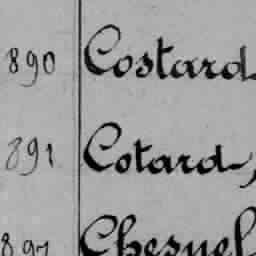 890 Costard
891 Cotard,
892 Chesnel